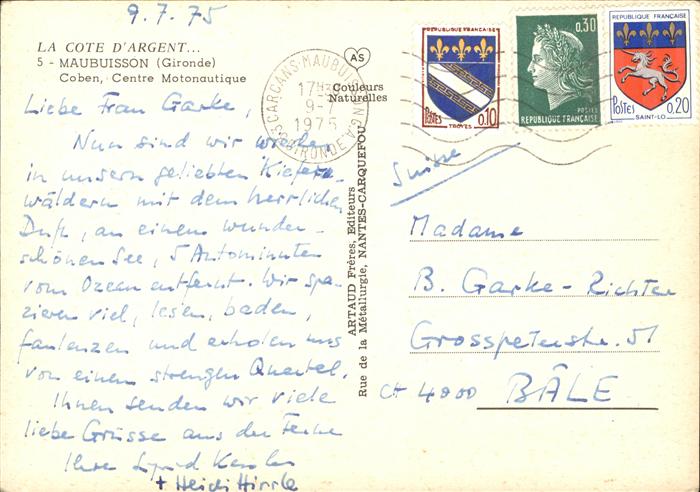 9.7.75
LA COTE D'ARGENT...
5 - MAUBUISSON (Gironde)
Coben, Centre Motonautique
Liebe Frau Garke,
Nun sind wir wieder
in unsern geliebten Kiefern-
wäldern mit dem herrlichen
Duft, an einem wunder-
schönen See, 5 Autominuten
vom Ozean entfernt. Wir spa-
zieren viel, lesen, baden,
faulenzen und erholen uns
von einem strengen Quartal.
Ihnen senden wir viele
liebe Grüsse aus der Ferne
Ihre
+ Heidi Hirrle
AS
Couleurs
Naturelles
ARTAUD Frères, Editeurs
Rue de la Métallurgie, NANTES-CARQUEFOU
CARCANS-MAUBUISSON
17H
9-7
1975
GIRONDE
REPUBLIQUE FRANÇAISE
Postes 0,10
TROYES
0,30
POSTES
REPUBLIQUE FRANÇAISE
REPUBLIQUE FRANÇAISE
Postes 0,20
SAINT-LO
Suisse
Madame
B. Garke-Richter
Grosspeterstr. 51
CH 4000 BÂLE